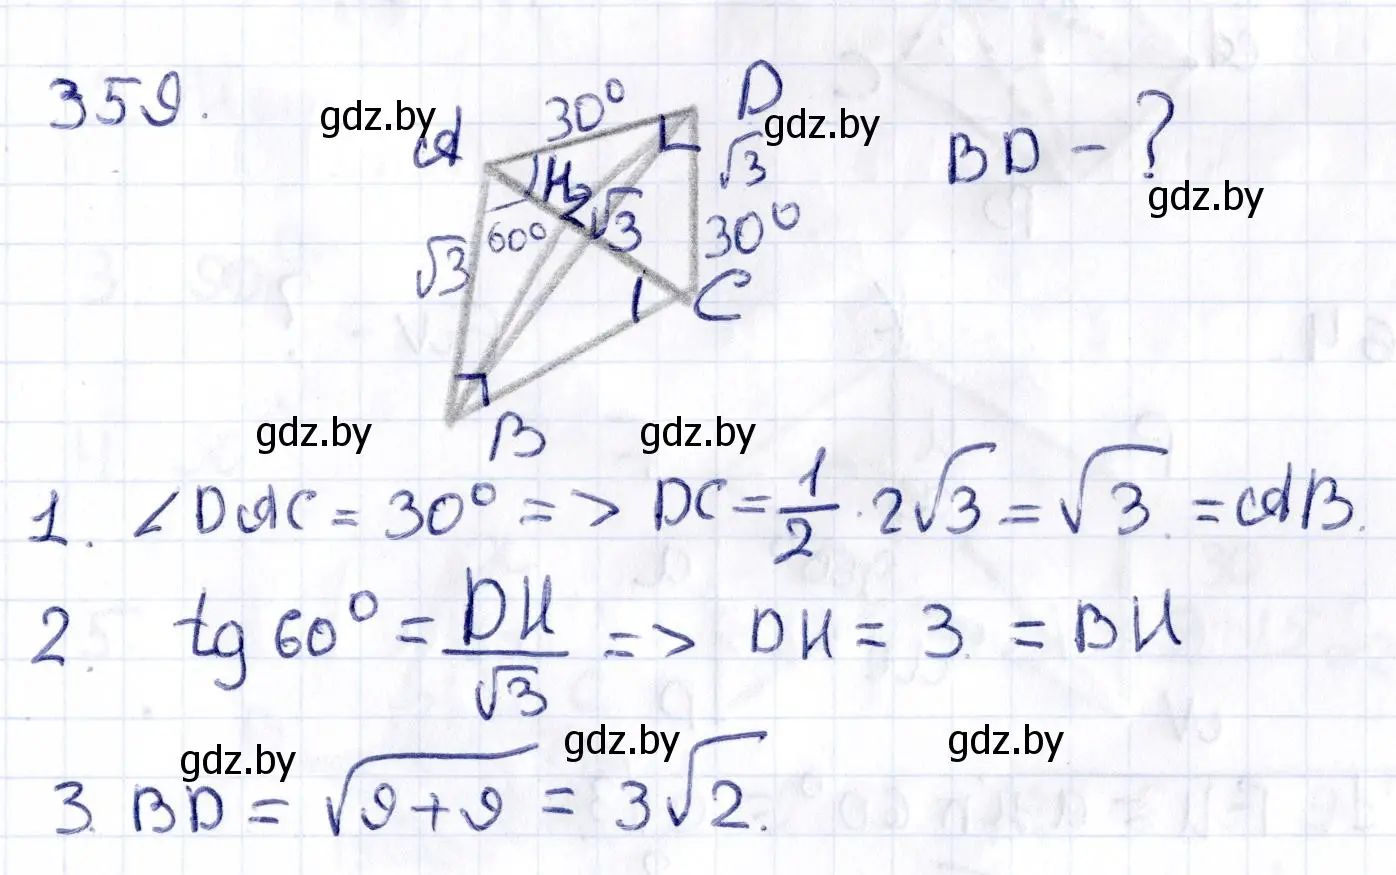 359.
gdz.by
30°
D
gdz.by
A
√3
BD - ?
gdz.by
H
√3
60°
30°
√3
C
gdz.by
gdz.by
B
1. ∠DAC = 30° => DC = 1/2 · 2√3 = √3. = AB.
2. tg 60° = DH/√3 => DH = 3. = BH
gdz.by
gdz.by
gdz.by
3. BD = √9+9 = 3√2.